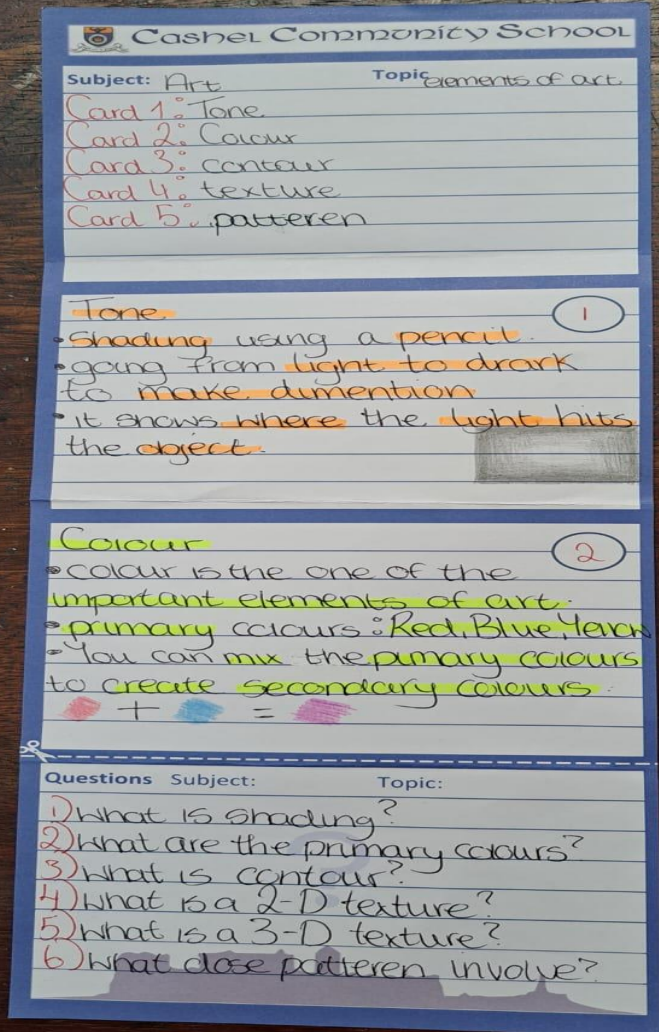 Cashel Community School
Subject: Art Topic elements of art
Card 1: Tone
Card 2: Colour
Card 3: contour
Card 4: texture
Card 5: patteren
Tone 1
• Shading using a pencil.
• going from light to drark
to make dimention
• it shows where the light hits
the object.
Colour 2
• colour is the one of the
important elements of art.
• primary colours: Red, Blue, Yellow
• You can mix the pimary colours
to create secondary colours.
+ =
Questions Subject: Topic:
1) What is shading?
2) What are the primary colours?
3) What is contour?
4) What is a 2-D texture?
5) What is a 3-D texture?
6) What dose patteren involve?